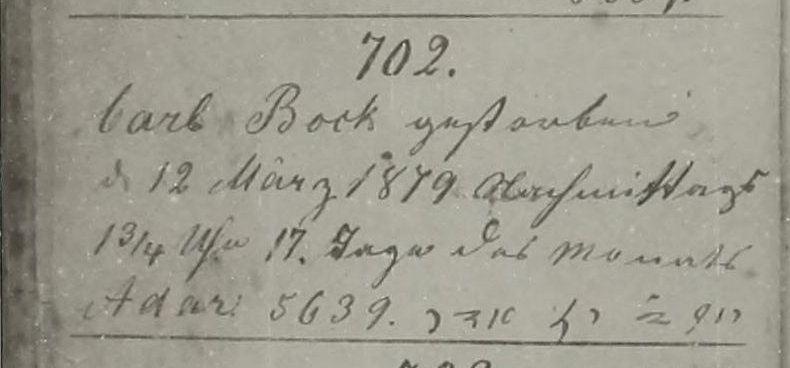 702.
Carl Bock gestorben
d. 12 März 1879 Nachmittags
1 3/4 Uhr 17. Tage des Monats
Adar 5639. יום ד' יז אדר